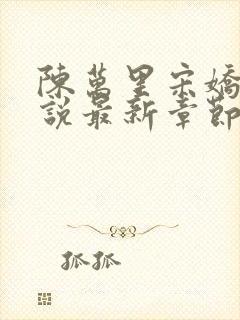 陳萬里宋嬌
說最新章節
孤孤